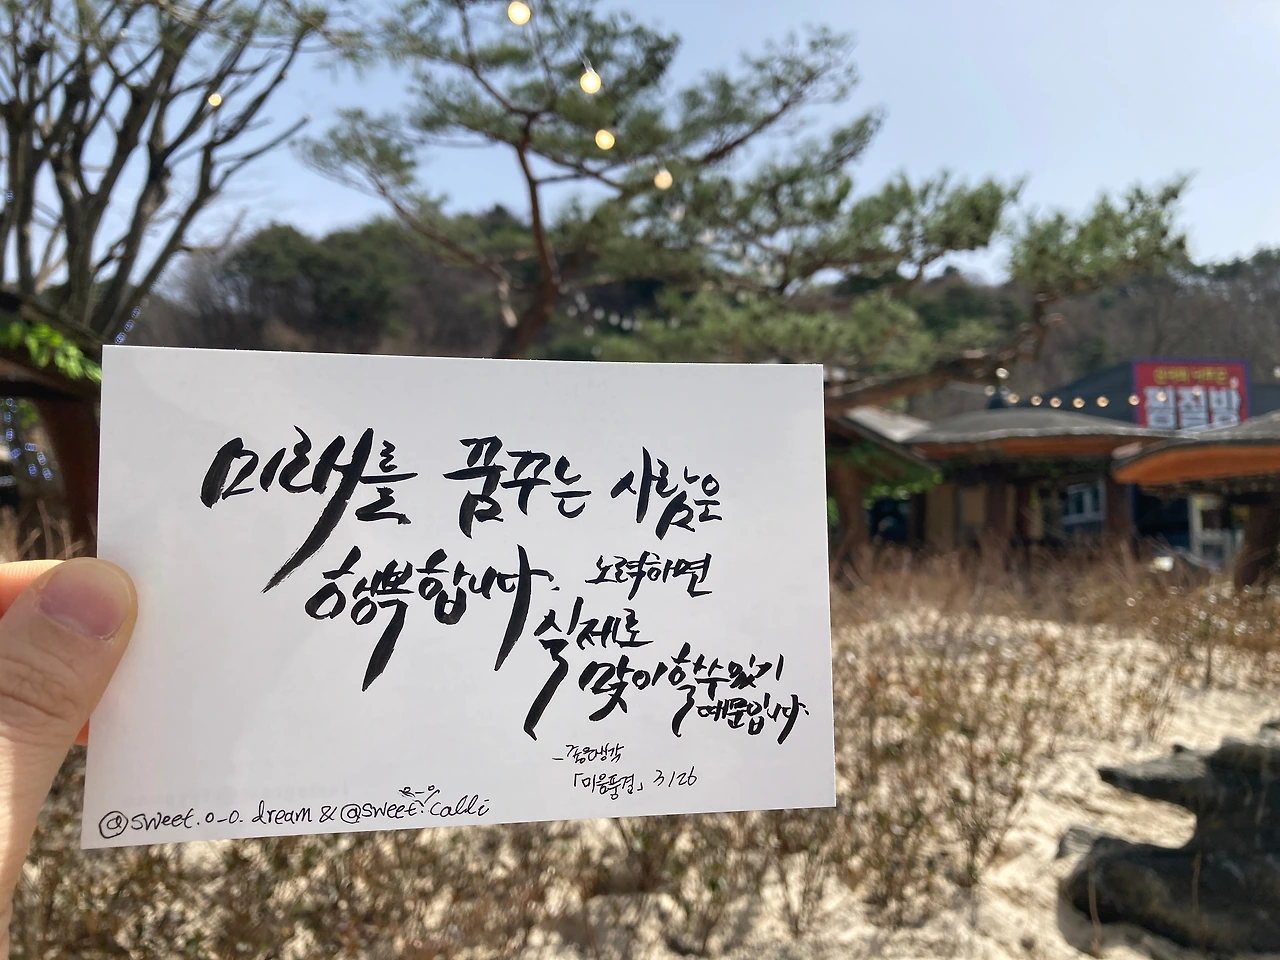 미래를 꿈꾸는 사람은
행복합니다. 노력하면
실제로
맞이할 수 있기
때문입니다.
_좋은생각
「마음풍경」 3/26
@sweet.o_o.dream & @sweet.o_o.calli
찜질방